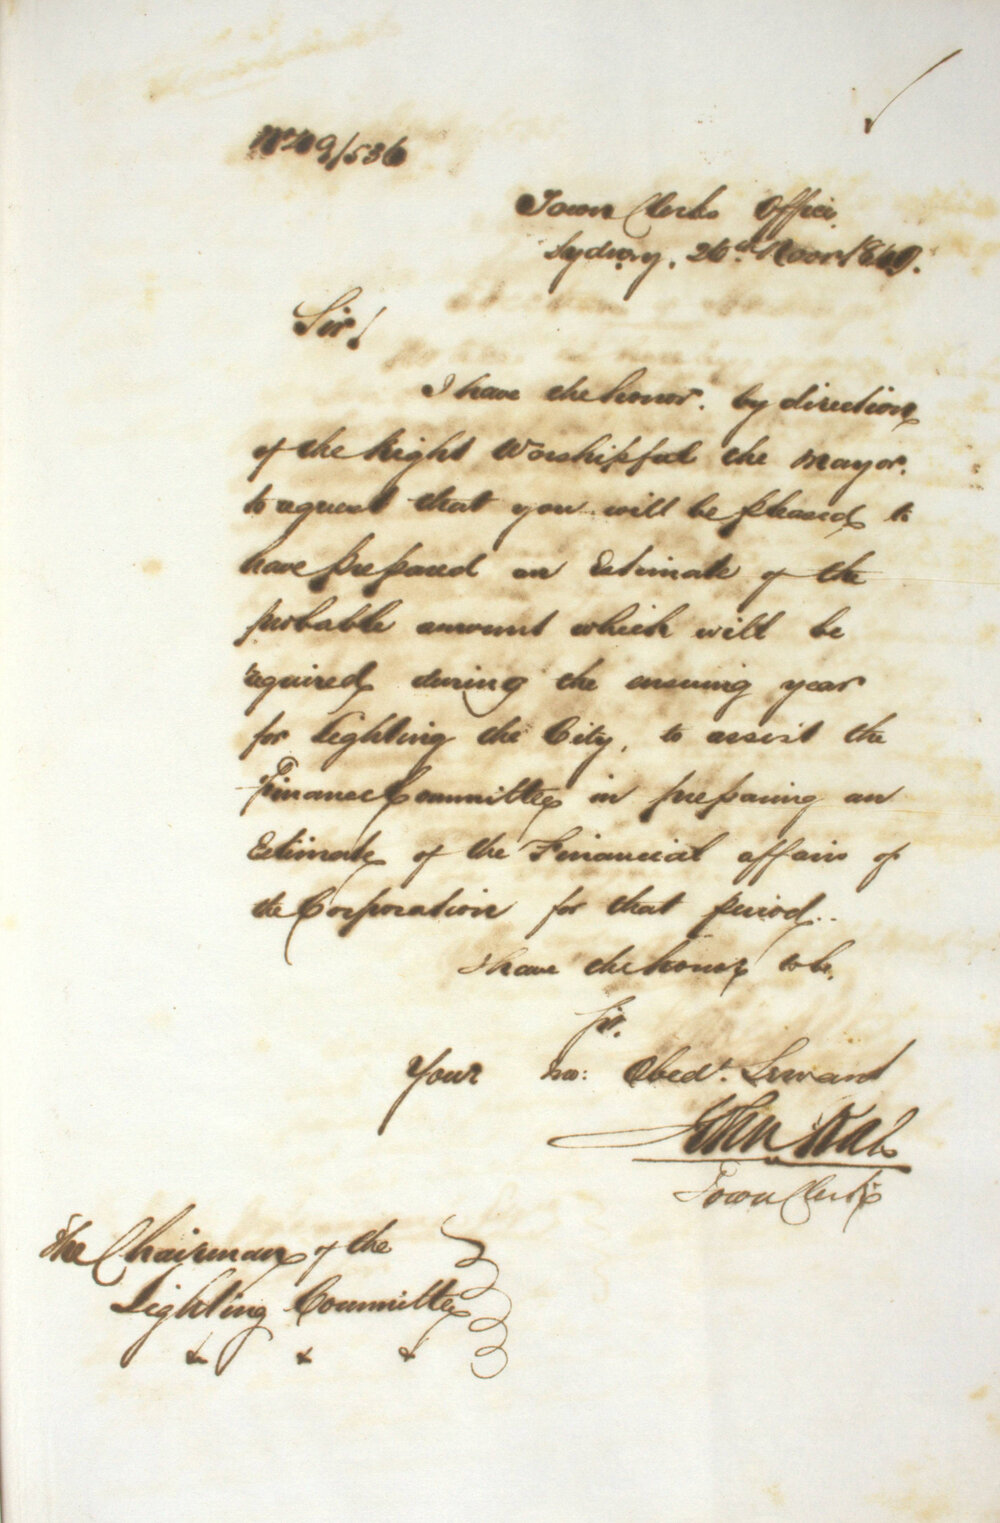 No 49/536
Town Clerks Office
Sydney, 26th Novr 1849.
Sir!
I have the honor, by direction
of the Right Worshipful the Mayor,
to request that you will be pleased to
have prepared an Estimate of the
probable amount which will be
required during the ensuing year
for Lighting the City, to assist the
Finance Committee in preparing an
Estimate of the Financial affairs of
the Corporation for that period..
I have the honor to be,
Sir,
Your mo: Obedt. Servant
John
Town Clerk
The Chairman of the
Lighting Committee